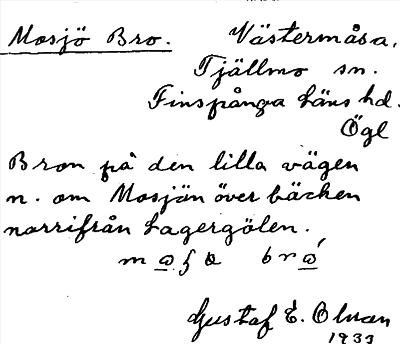 Mosjö Bro. Västermåsa,
Tjällmo sn.
Finspånga läns hd.
Ögl
Bron på den lilla vägen
n. om Mosjön över bäcken
norrifrån Lagergölen.
Gustaf E. Olsson
1933